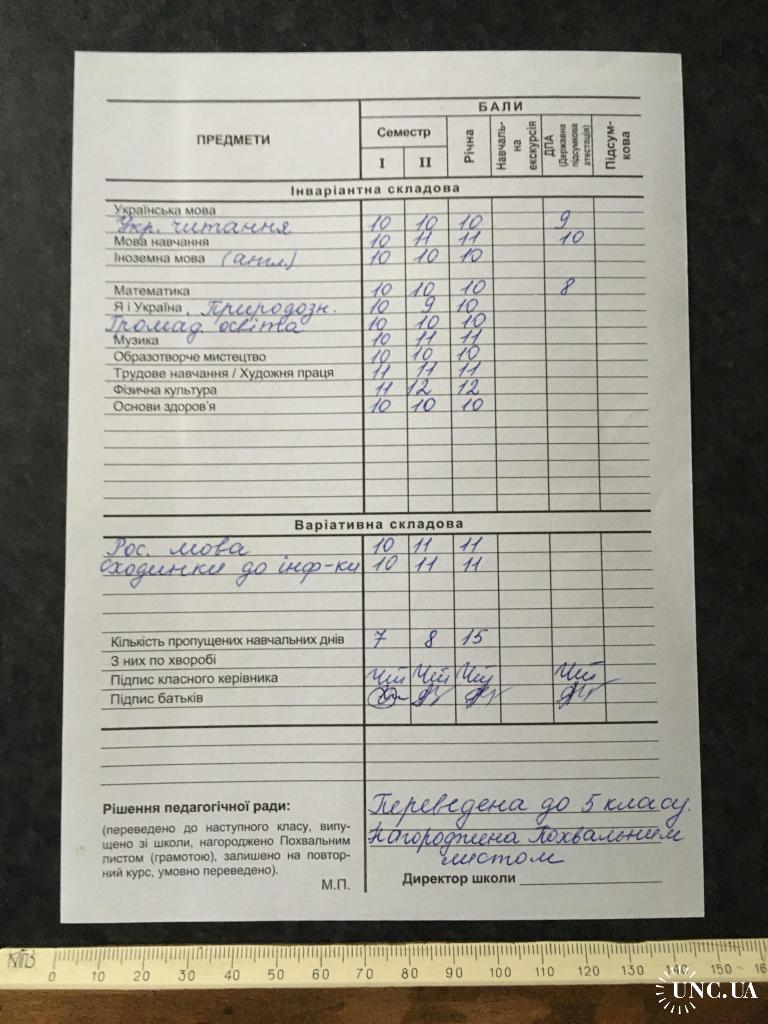 ПРЕДМЕТИ
БАЛИ
Семестр
I II
Річна
Навчаль-
на
екскурсія
ДПА
(Державна
підсумкова
атестація)
Підсум-
кова
Інваріантна складова
Українська мова
Укр. читання 10 10 10 9
Мова навчання 10 11 11 10
Іноземна мова (англ) 10 10 10
Математика 10 10 10 8
Я і Україна. Природозн. 10 9 10
Громад. освіта 10 10 10
Музика 10 11 11
Образотворче мистецтво 10 10 10
Трудове навчання / Художня праця 11 11 11
Фізична культура 11 12 12
Основи здоров'я 10 10 10
Варіативна складова
Рос. мова 10 11 11
Сходинки до інф-ки 10 11 11
Кількість пропущених навчальних днів 7 8 15
З них по хворобі
Підпис класного керівника
Підпис батьків
Рішення педагогічної ради:
(переведено до наступного класу, випу-
щено зі школи, нагороджено Похвальним
листом (грамотою), залишено на повтор-
ний курс, умовно переведено).
М.П.
Переведена до 5 класу.
Нагороджена Похвальним
листом
Директор школи
0 10 20 30 40 50 60 70 80 90 100 110 120 130 140 150 16
UNC.UA